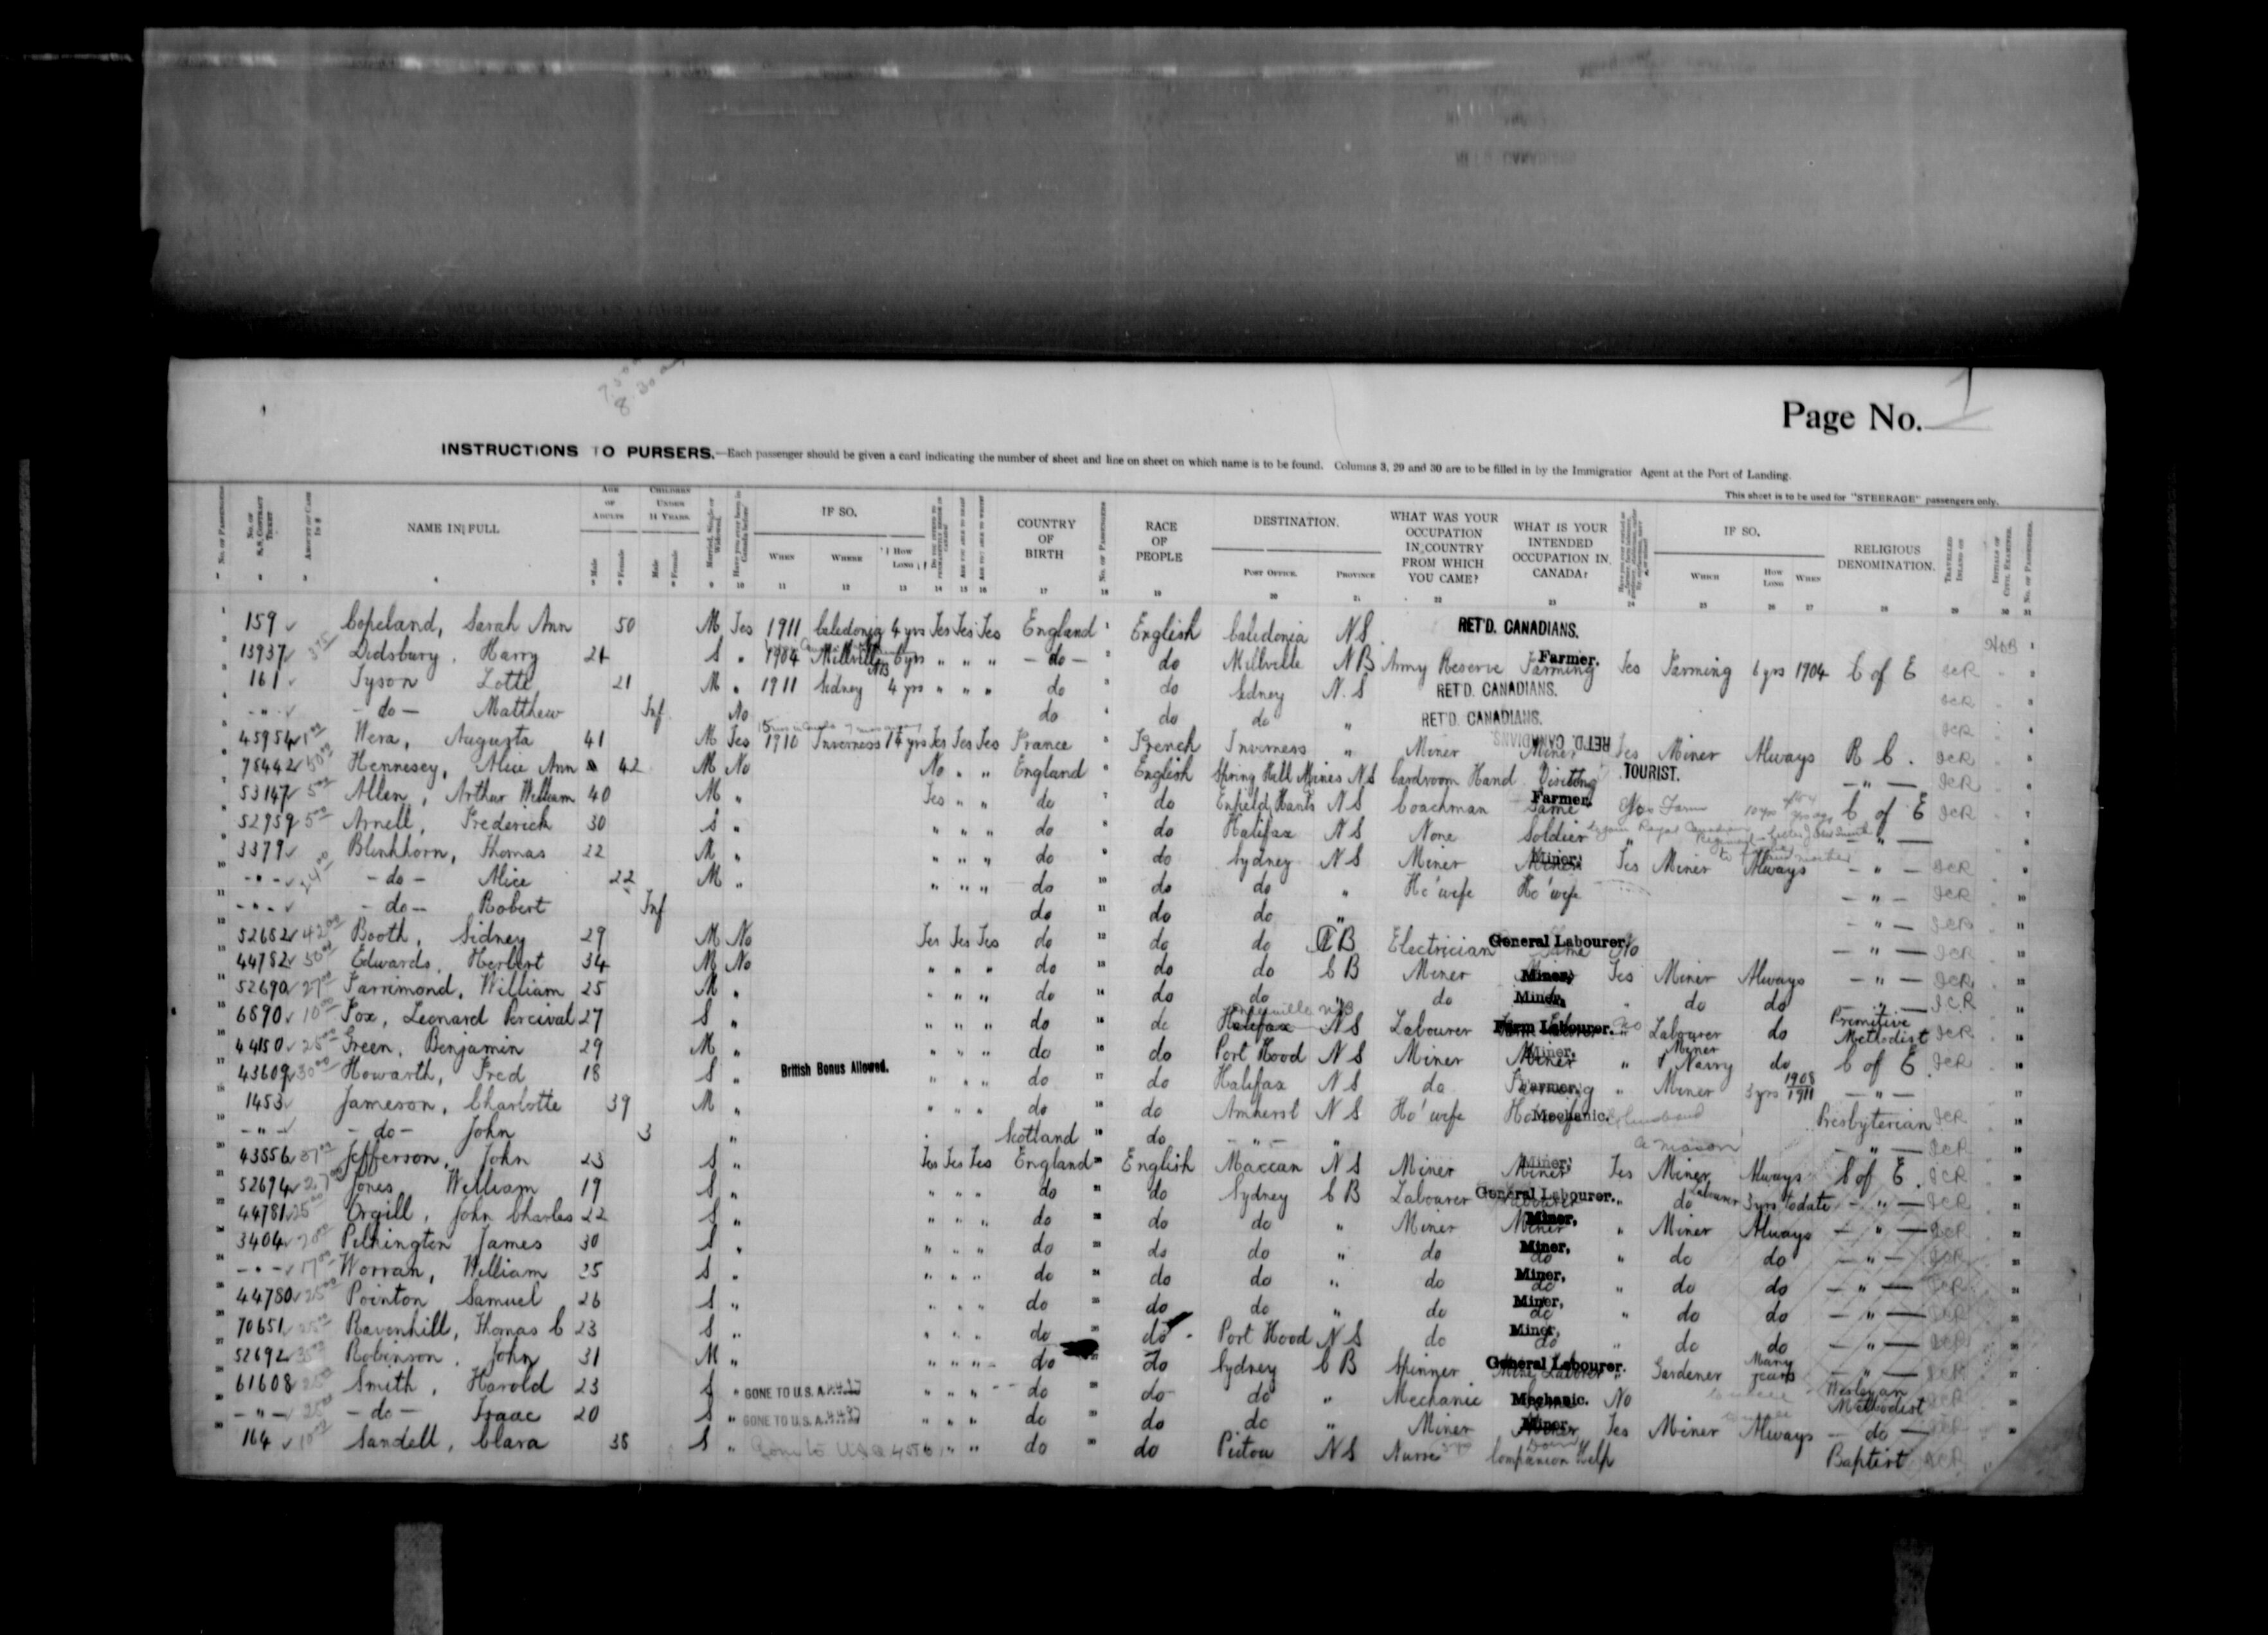 Page No. 1
INSTRUCTIONS TO PURSERS.—Each passenger should be given a card indicating the number of sheet and line on sheet on which name is to be found. Columns 3, 29 and 30 are to be filled in by the Immigration Agent at the Port of Landing.
This sheet is to be used for "STEERAGE" passengers only.
NAME IN FULL AGE OF ADULTS CHILDREN UNDER 14 YEARS IF SO, WHEN WHERE HOW LONG COUNTRY OF BIRTH RACE OF PEOPLE DESTINATION. POST OFFICE. PROVINCE WHAT WAS YOUR OCCUPATION IN COUNTRY FROM WHICH YOU CAME? WHAT IS YOUR INTENDED OCCUPATION IN CANADA? IF SO, WHICH HOW LONG WHEN RELIGIOUS DENOMINATION.
159 Copeland, Sarah Ann 50 M Yes 1911 Caledonia 4 yrs Yes Yes Yes England English Caledonia NS RET'D. CANADIANS.
13937 Didsbury, Harry 21 S " 1904 Millville NB 6 yrs " " " - do - do Millville NB Army Reserve Farming Farmer. Yes Farming 6 yrs 1904 C of E ICR
161 Tyson Lotte 21 M " 1911 Sidney 4 yrs " " " do do Sidney N.S RET'D. CANADIANS. ICR
- " - - do - Matthew Inf No do do do " RET'D. CANADIANS. ICR
45954 Wera, Augusta 41 M Yes 1910 Inverness Yes Yes Yes France French Inverness " Miner Miner Yes Miner Always R C. ICR
78442 50 00 Hennesey, Alice Ann 42 M No No " " England English Spring Hill Mines NS Cardroom Hand Visiting TOURIST. - " - ICR
53147 5 00 Allen, Arthur William 40 M " Yes " " do do Enfield Hants NS Coachman Same Farmer. No Farm C of E ICR
52959 5 00 Arnell, Frederick 30 S " " " " do do Halifax NS None Soldier " - " -
3379 Blinkhorn, Thomas 22 M " " " " do do Sydney NS Miner Miner. Yes Miner Always - " - ICR
- " - 24 00 - do - Alice 22 M " " " " do do do " Ho'wife Ho'wife - " - ICR
- " - - do - Robert Inf do do do " - " - ICR
52682 42 00 Booth, Sidney 29 M No Yes Yes Yes do do do CB Electrician Same General Labourer. No - " - ICR
44782 50 00 Edwards, Herbert 34 M No " " " do do do CB Miner Miner. Yes Miner Always - " - ICR
52690 27 00 Farrimond, William 25 M " " " " do do do " do Miner. " do do - " - ICR
6890 10 00 Fox, Leonard Percival 27 S " " " " do do Halifax NS Labourer Farm Labourer. " No Labourer do Primitive Methodist ICR
44150 25 00 Green, Benjamin 29 M " " " " do do Port Hood NS Miner Miner. " Miner & Navvy do C of E ICR
43609 30 00 Howarth, Fred 18 S " British Bonus Allowed. " " " do do Halifax NS do Farming Farmer. " Miner 3 yrs 1908 1911 - " -
1453 Jameson, Charlotte 39 M " " " " do do Amherst NS Ho'wife Ho'wife Mechanic. Husband Presbyterian ICR
- " - - do - John 3 " Scotland do - " - " - " - ICR
43556 Jefferson, John 23 S " Yes Yes Yes England English Maccan NS Miner Miner. Yes Miner Always C of E. ICR
52694 27 00 Jones, William 19 S " " " " do do Sydney CB Labourer General Labourer. " do Labourer 3 yrs to date - " - ICR
44781 25 00 Orgill, John Charles 22 S " " " " do do do " Miner Miner. " Miner Always - " - ICR
3404 Pilkington James 30 S " " " " do do do " do do Miner. " do do - " - ICR
- " - 17 00 Worran, William 25 S " " " " do do do " do do Miner. " do do - " - ICR
44780 25 00 Pointon Samuel 26 S " " " " do do do " do do Miner. " do do - " - ICR
70651 Ravenhill, Thomas C 23 S " " " " do do Port Hood NS do do Miner. " do do - " - ICR
52692 Robinson, John 31 M " " " " do do Sydney CB Spinner General Labourer. " Gardener Many years - " - ICR
61608 Smith, Harold 23 S " GONE TO U.S.A. " " " do do do " Mechanic Mechanic. No Wesleyan Methodist
- " - - do - Isaac 20 S " GONE TO U.S.A. " " " do do do " Miner Miner. Yes Miner Always - do -
164 Sandell, Clara 38 S " Gone to USA " " do do Pictou NS Nurse Companion Help Baptist ICR